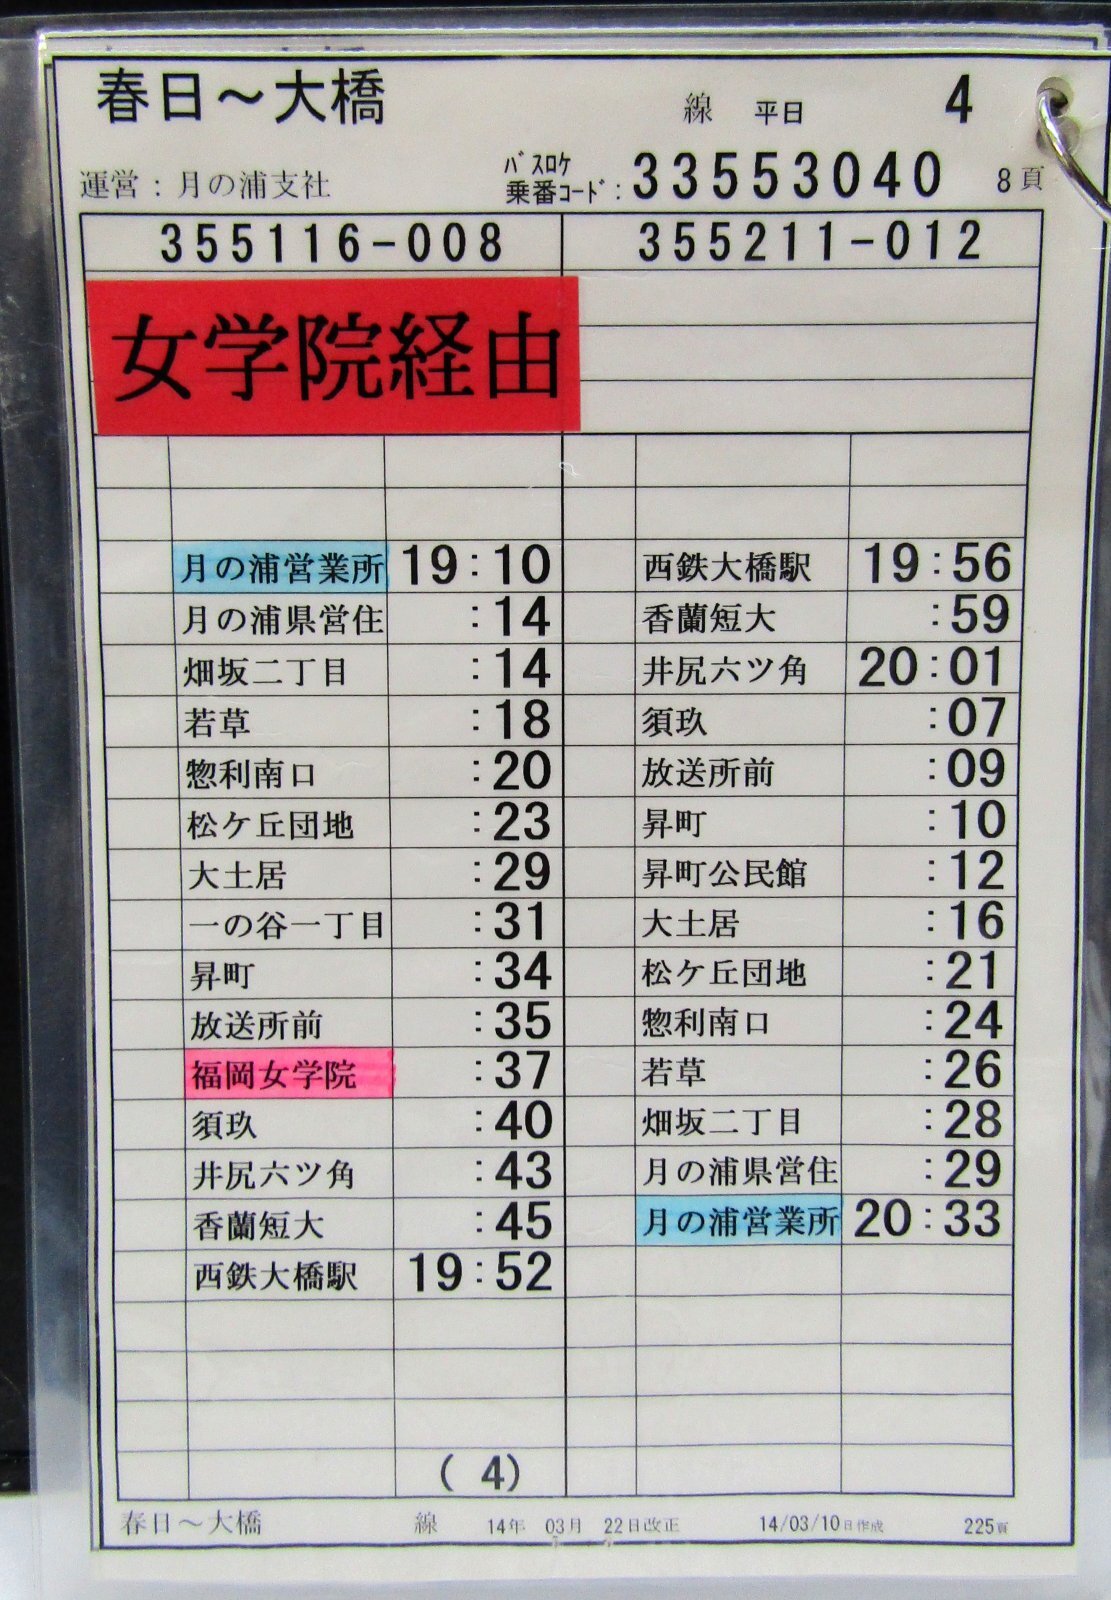 春日～大橋 線 平日 4
運営：月の浦支社 ﾊﾞｽﾛｹ 乗番ｺｰﾄﾞ：33553040 8頁
355116-008 355211-012
女学院経由
月の浦営業所 19:10 西鉄大橋駅 19:56
月の浦県営住 :14 香蘭短大 :59
畑坂二丁目 :14 井尻六ツ角 20:01
若草 :18 須玖 :07
惣利南口 :20 放送所前 :09
松ケ丘団地 :23 昇町 :10
大土居 :29 昇町公民館 :12
一の谷一丁目 :31 大土居 :16
昇町 :34 松ケ丘団地 :21
放送所前 :35 惣利南口 :24
福岡女学院 :37 若草 :26
須玖 :40 畑坂二丁目 :28
井尻六ツ角 :43 月の浦県営住 :29
香蘭短大 :45 月の浦営業所 20:33
西鉄大橋駅 19:52
( 4)
春日～大橋 線 14年 03月 22日改正 14/03/10日作成 225頁